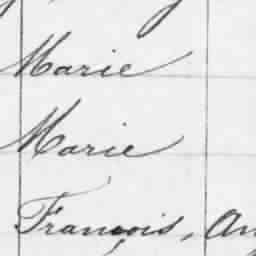 Marie
Marie
François,